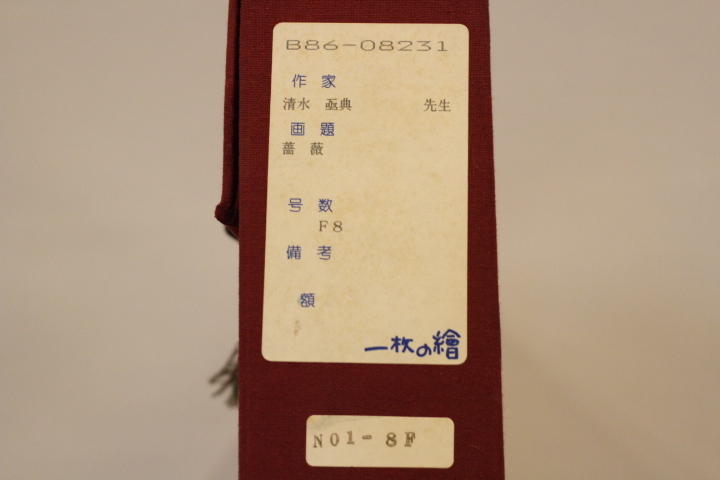 B86-08231
作家
清水 亟典 先生
画題
薔薇
号数
F8
備考
額
一枚の繪
N01-8F